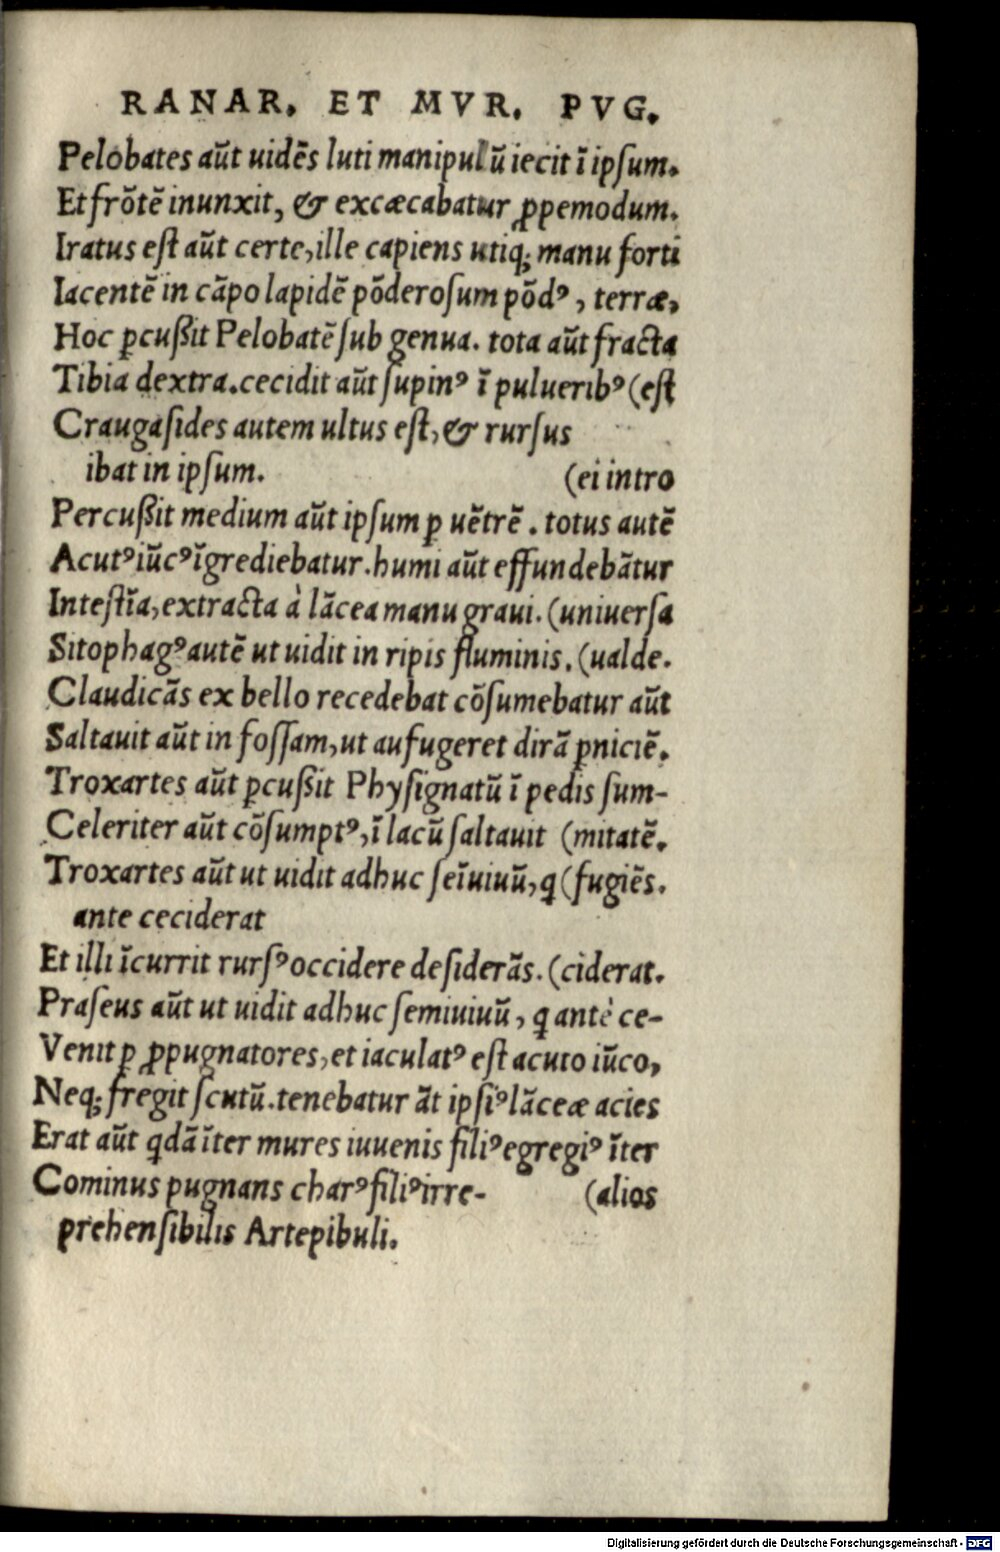 RANAR. ET MVR. PVG.
Pelobates aūt uidēs luti manipulū iecit ī ipſum.
Et frōtē inunxit, & excæcabatur ꝓpemodum.
Iratus eſt aūt certe, ille capiens utiq; manu forti
Iacentē in cāpo lapidē pōderoſum pōdꝰ, terræ,
Hoc ꝑcußit Pelobatē ſub genua. tota aūt fracta
Tibia dextra. cecidit aūt ſupinꝰ ī pulueribꝰ (eſt
Craugaſides autem ultus eſt, & rurſus
ibat in ipſum. (ei intro
Percußit medium aūt ipſum ꝑ uētrē. totus autē
Acutꝰ iūcꝰ īgrediebatur. humi aūt effundebātur
Inteſtīa, extracta à lācea manu graui. (uniuerſa
Sitophagꝰ autē ut uidit in ripis fluminis, (ualde.
Claudicās ex bello recedebat cōſumebatur aūt
Saltauit aūt in foſſam, ut aufugeret dirā ꝑniciē.
Troxartes aūt ꝑcußit Phyſignatū ī pedis ſum-
Celeriter aūt cōſumptꝰ, ī lacū ſaltauit (mitatē.
Troxartes aūt ut uidit adhuc ſeīuiuū, q (fugiēs.
ante ceciderat
Et illi īcurrit rurſꝰ occidere deſiderās. (ciderat.
Praſeus aūt ut uidit adhuc ſemiuiuū, q antè ce-
Venit ꝑ ꝓpugnatores, et iaculatꝰ eſt acuto iūco,
Neq; fregit ſcutū. tenebatur āt ipſiꝰ lāceæ acies
Erat aūt qdā īter mures iuuenis filiꝰ egregiꝰ īter
Cominus pugnans charꝰ filiꝰ irre- (alios
prehenſibilis Artepibuli.
Digitalisierung gefördert durch die Deutsche Forschungsgemeinschaft - DFG